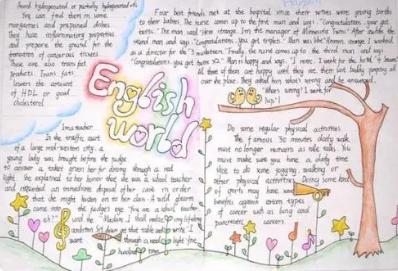 Avoid hydrogenated or partially hydrogenated oils
You can find them in some
margarines and prepared dishes.
They have inflammatory properties
and prepare the ground for the
formation of cancerous
These are also trans fat
products. Trans fats
lowers the amount
of HDL or good
cholesterol
English
world
Four best friends met at the hospital since their wives were giving births
to their babies. The nurse comes up to the first man and says: "Congratulations, your got
twins." The man said "How strange, I'm the manager of Minnesota Twins." After awhile the
man and says: "Congratulations. You got triplets." Man was like "Hmmm, strange I worked
as a director for the "3 musketeers." Finally, the nurse comes up to the third man and says
"Congratulations, you got twins x2." Man is happy and says, "I work for the hotel "4 Seasons"
All three of them are happy until they see their last buddy jumping all
over the place. They asked him what's wrong and he answered,
"What's wrong! I work for
I'm a teacher
In the traffic court
of a large mid-western city, a
young lady was brought before the judge
to answer a ticket given her for driving through a red
light. She explained to his honor that she was a school teacher
and requested an immediate disposal of her case in order
that she might hasten on to her class. A wild gleam
came into the judge's eye. "You are a school teacher,
eh?" said the "Madam I shall realize my lifelong
ambition. Sit down at that table and write I
went through a red light five
hundred times
Do some regular physical activities
the famous 30 minutes daily walk
must no longer remains as idle talk. You
must make sure you have a daily time
slot to do some jogging, walking or
other physical activities. Doing some kind
of sports may have
benefits against certain types
of cancer such as lung and
pancreatic cancers